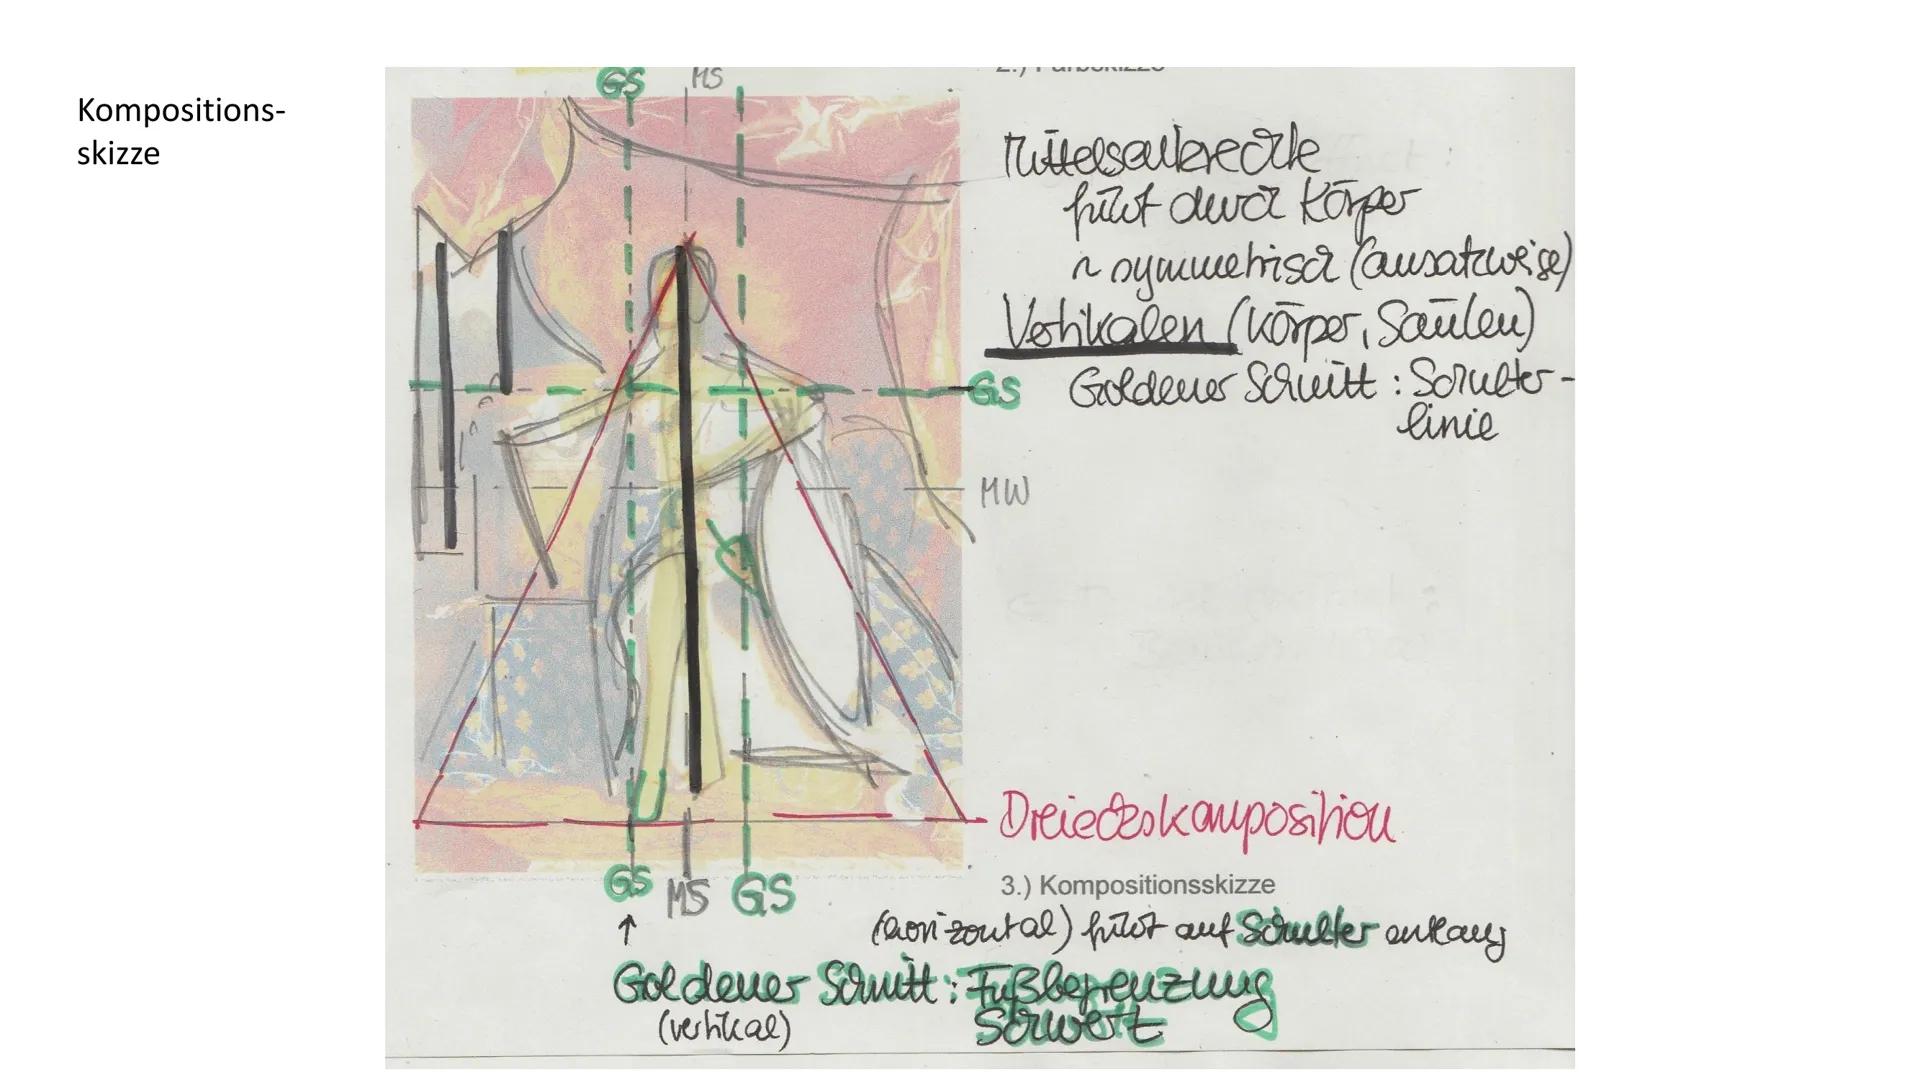 Kompositions-
skizze
GS MS
2.) Farbskizze
Mittelsenkrechte
führt durch Körper
~ symmetrisch (ansatzweise)
Vertikalen (Körper, Säulen)
GS
Goldener Schnitt : Schulter-
linie
MW
Dreieckskomposition
GS MS GS
3.) Kompositionsskizze
(horizontal) führt auf Schulter entlang
Goldener Schnitt : Fußbegrenzung
(vertikal) Schwert